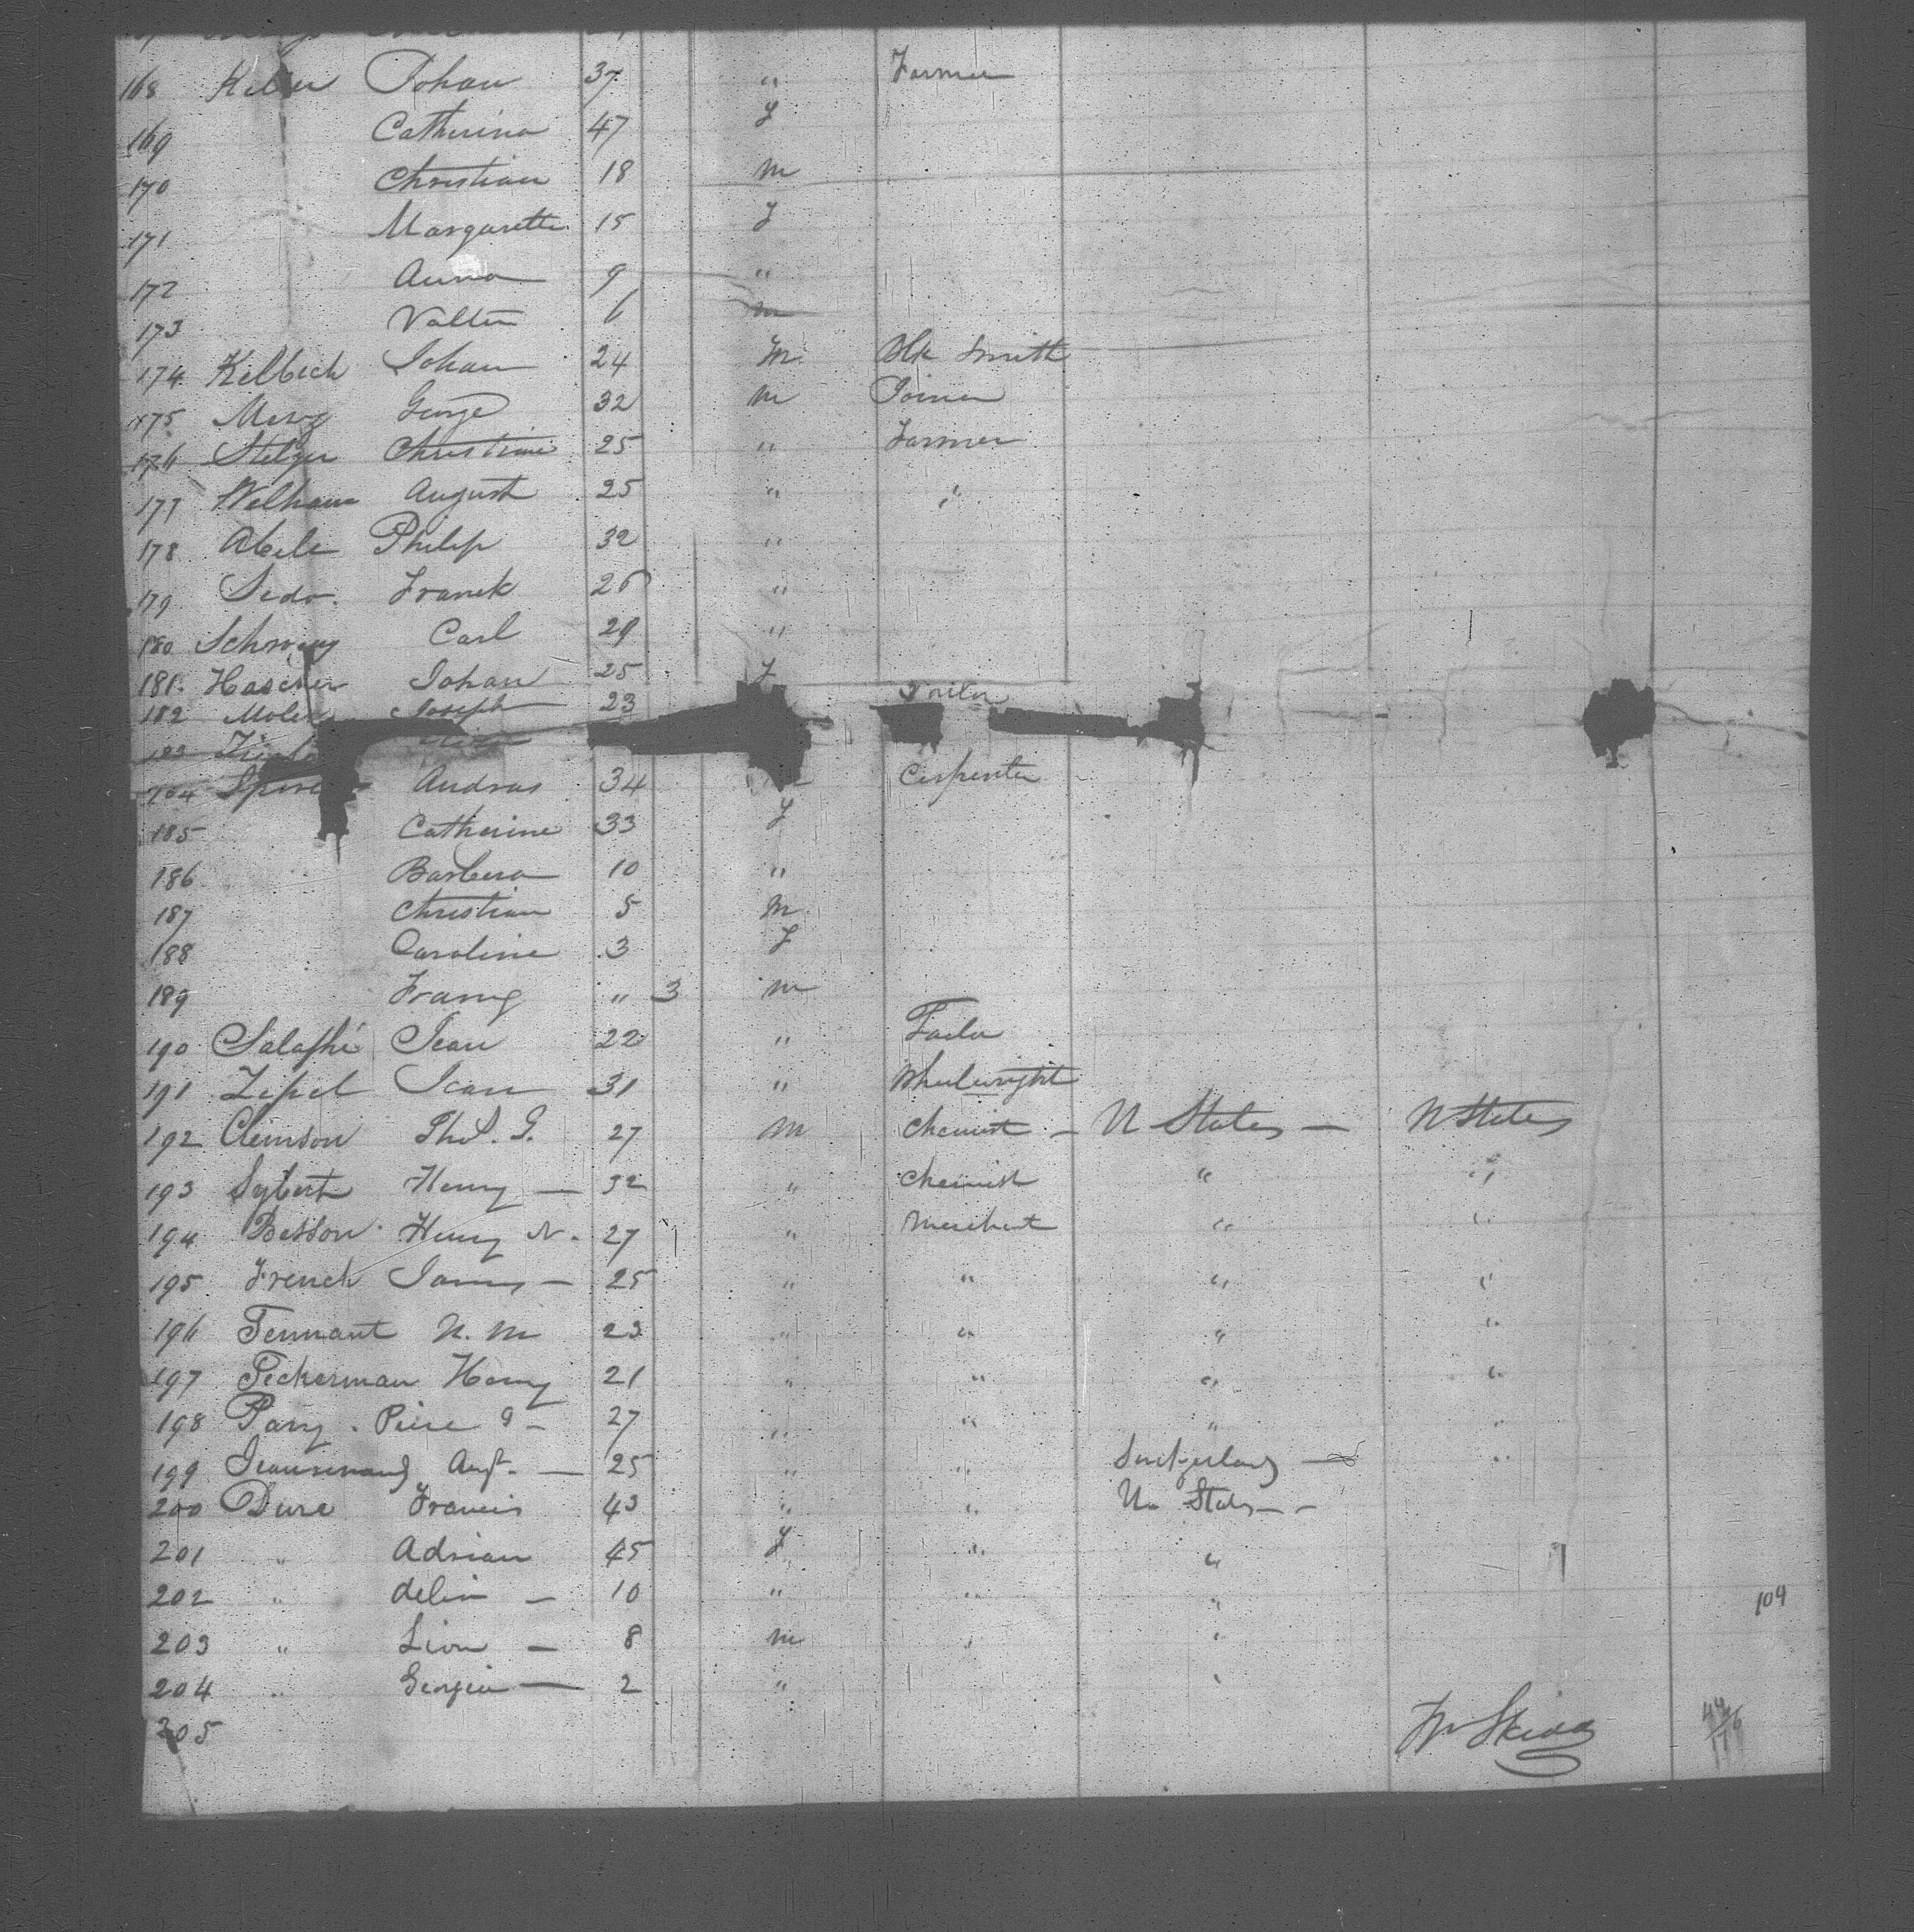 168 Keller Johan 37 " Farmer
169 Catherina 47 f
170 Christian 18 m
171 Margarette 15 f
172 Anna 9 "
173 Valtin 6 m
174 Kelbech Johan 24 m Blk Smith
175 Merz George 32 m Joiner
176 Stelzer Christian 25 " Farmer
177 August 25 " "
178 Abele Philip 32 "
179 Sedo. Franck 26 "
180 Schwarz Carl 29 "
181 Hascher Johan 25 f
182 Joseph 23 Tailor
183
184 Andras 34 Carpenter
185 Catherine 33 f
186 Barbera 10 "
187 Christian 5 m
188 Caroline 3 f
189 Franz " 3 m
190 Jean 22 " Tailor
191 Zepel Jean 31 " Wheelwright
192 Clemson Tho. G. 27 m Chemist - U States - U States
193 Sybert Henry - 32 " Chemist " "
194 Besson Henry N. 27 " Merchant " "
195 French James - 25 " " " "
196 Tennant N. M 23 " " " "
197 Peckerman Henry 21 " " " "
198 Parry. Piere - 27 " " " "
199 Augt. - 25 " " Switzerland - "
200 Dure Francis 43 " " Un States - -
201 " Adrian 45 f " "
202 " delia - 10 " " "
203 " Lion - 8 m " "
204 " Georgia - 2 " "
205
Skidd
109